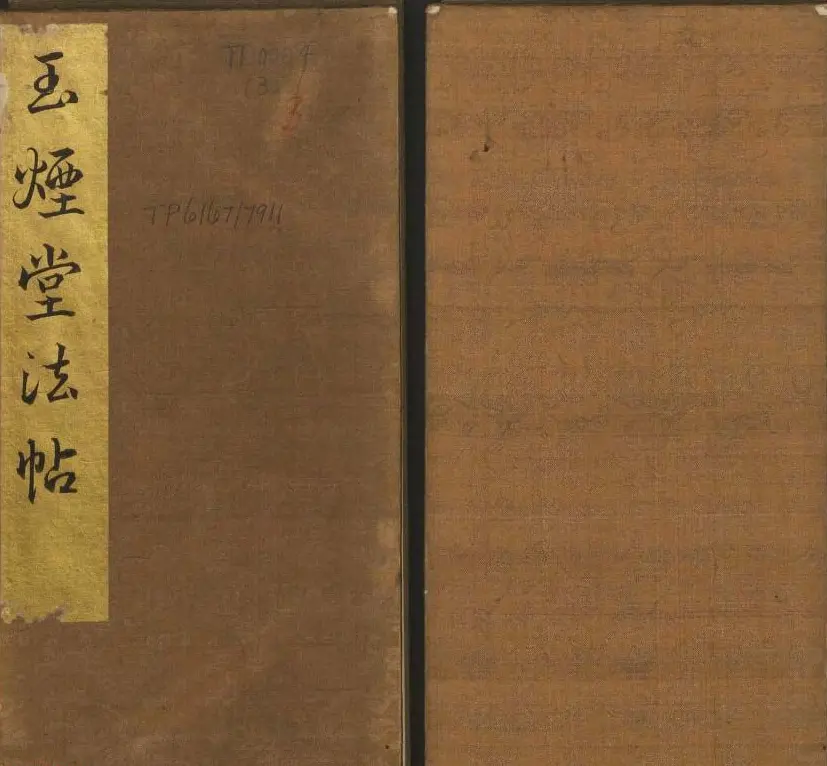 玉煙堂法帖
(3
3
TP6167/7911